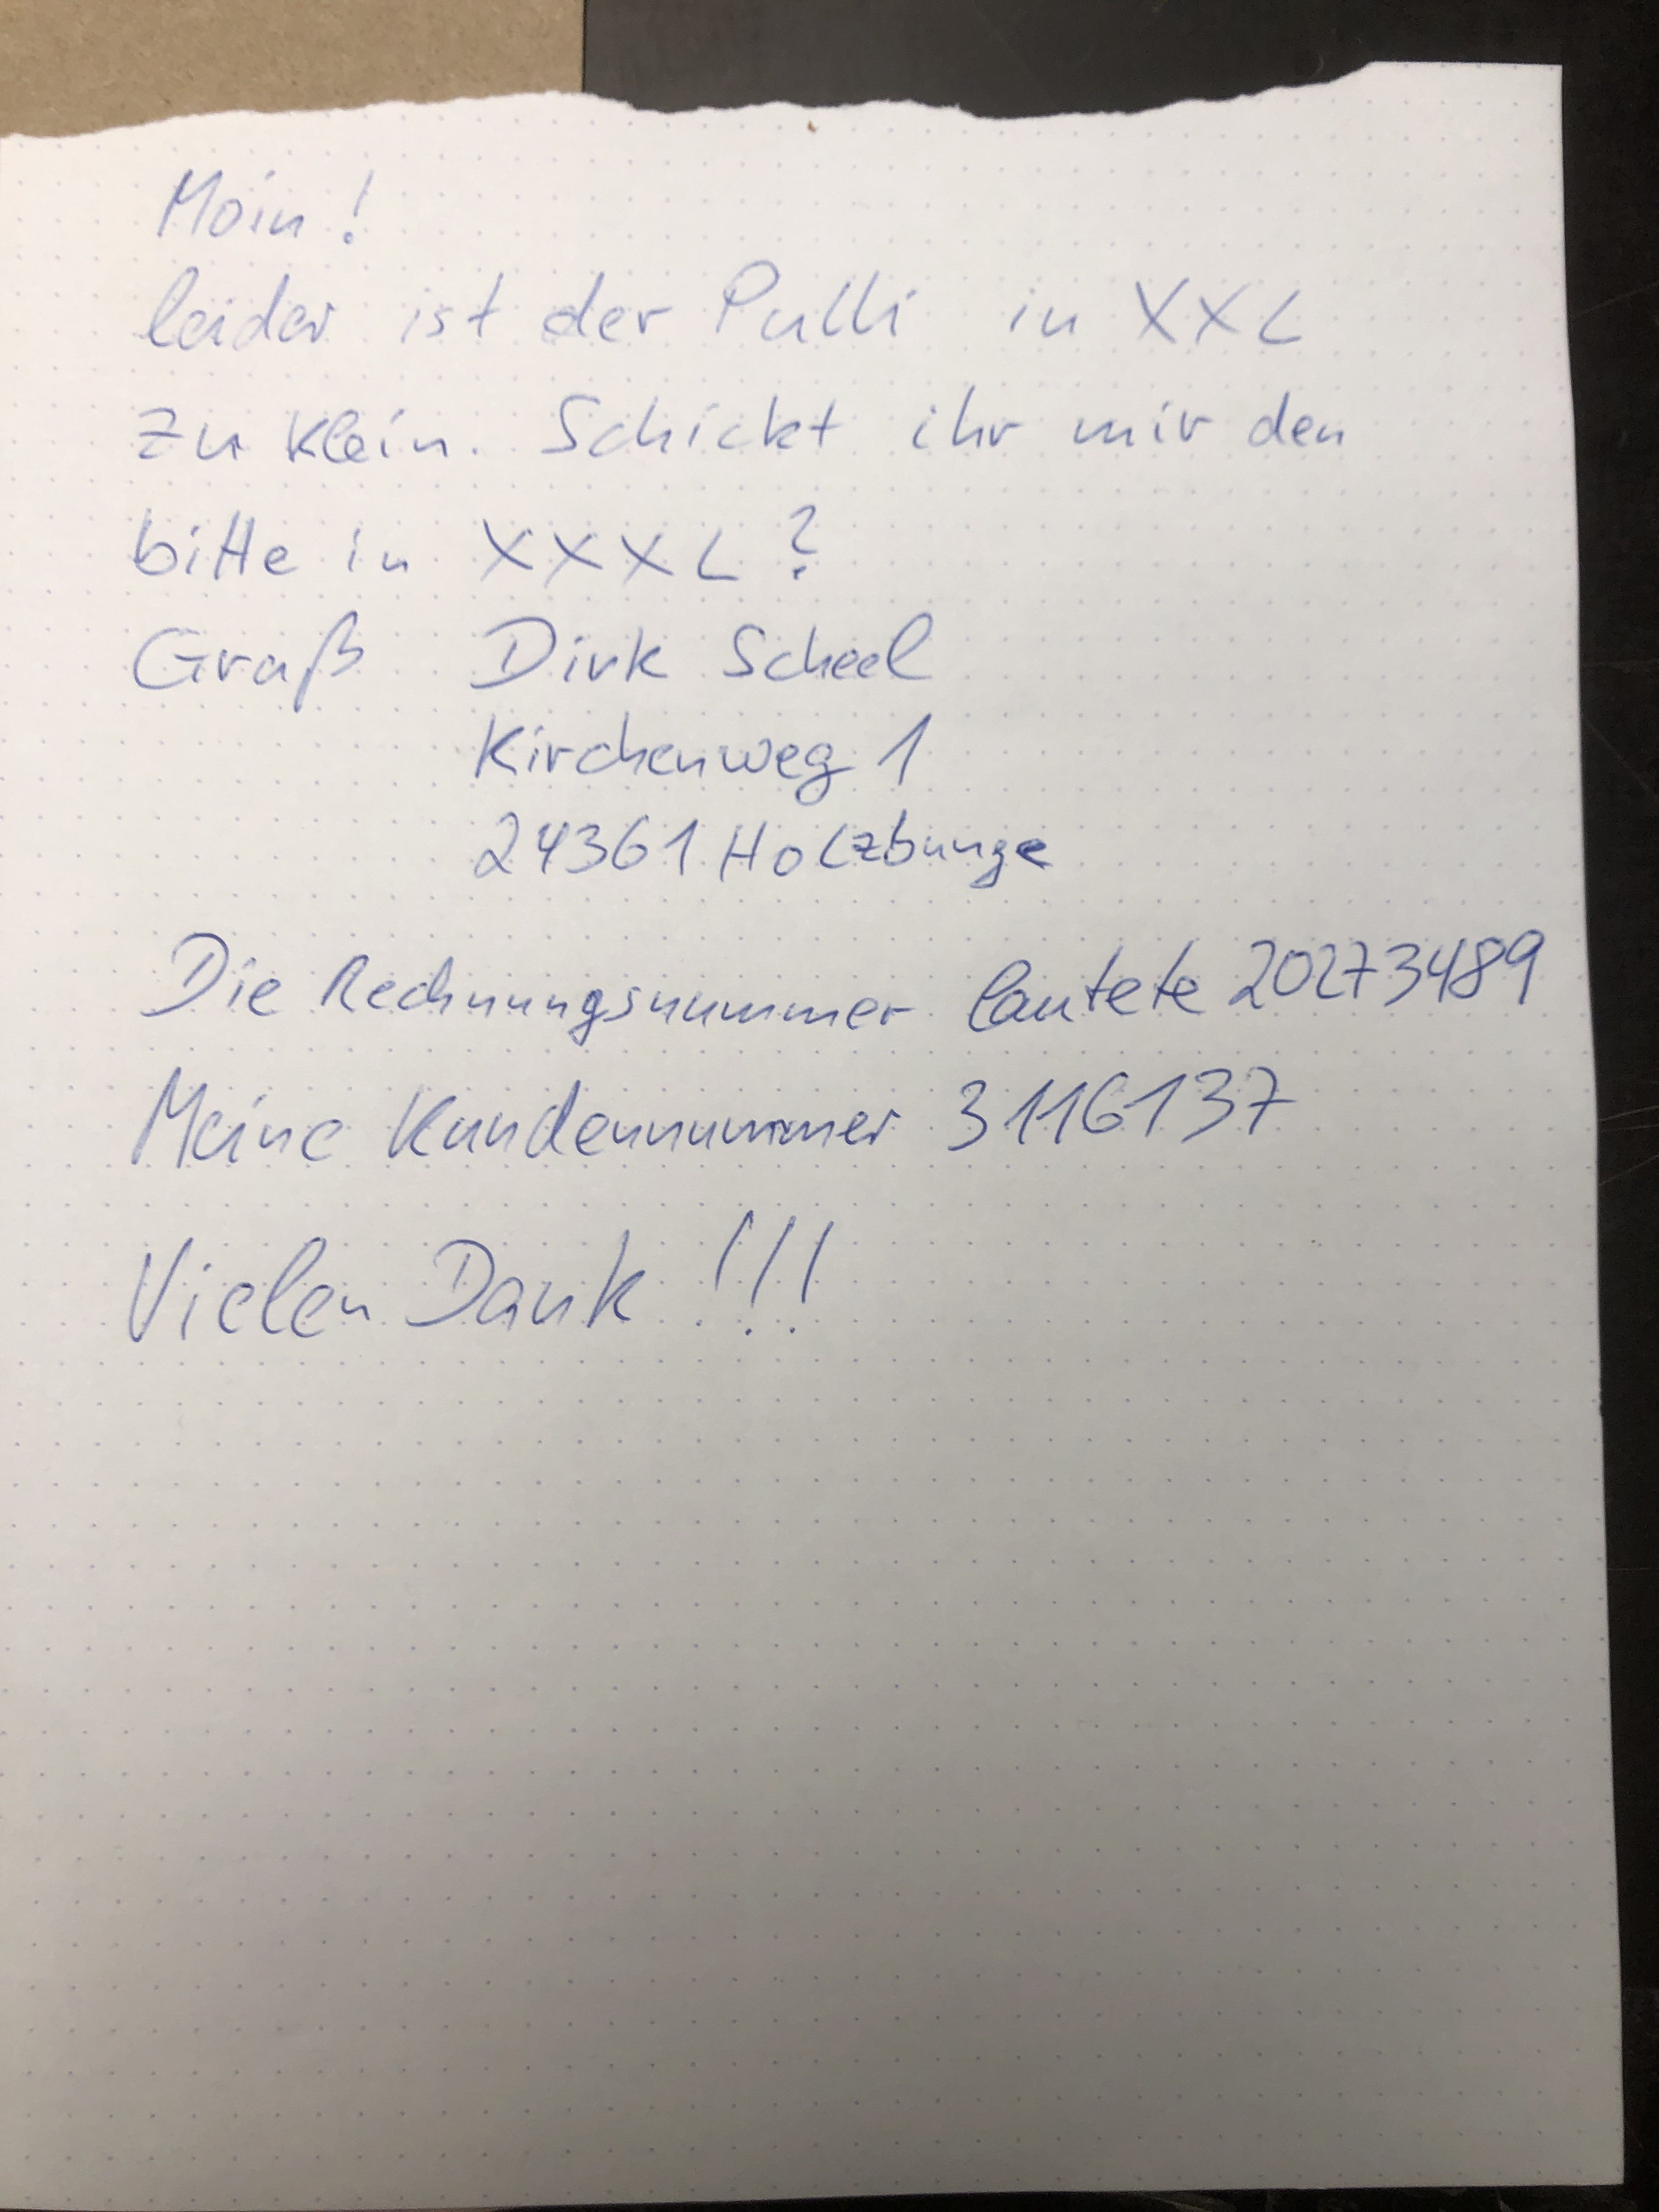 Moin!
leider ist der Pulli in XXL
zu klein. Schickt ihr mir den
bitte in XXXL?
Gruß Dirk Scheel
Kirchenweg 1
24361 Holzbunge
Die Rechnungsnummer lautete 20273489
Meine Kundennummer 3116137
Vielen Dank!!!